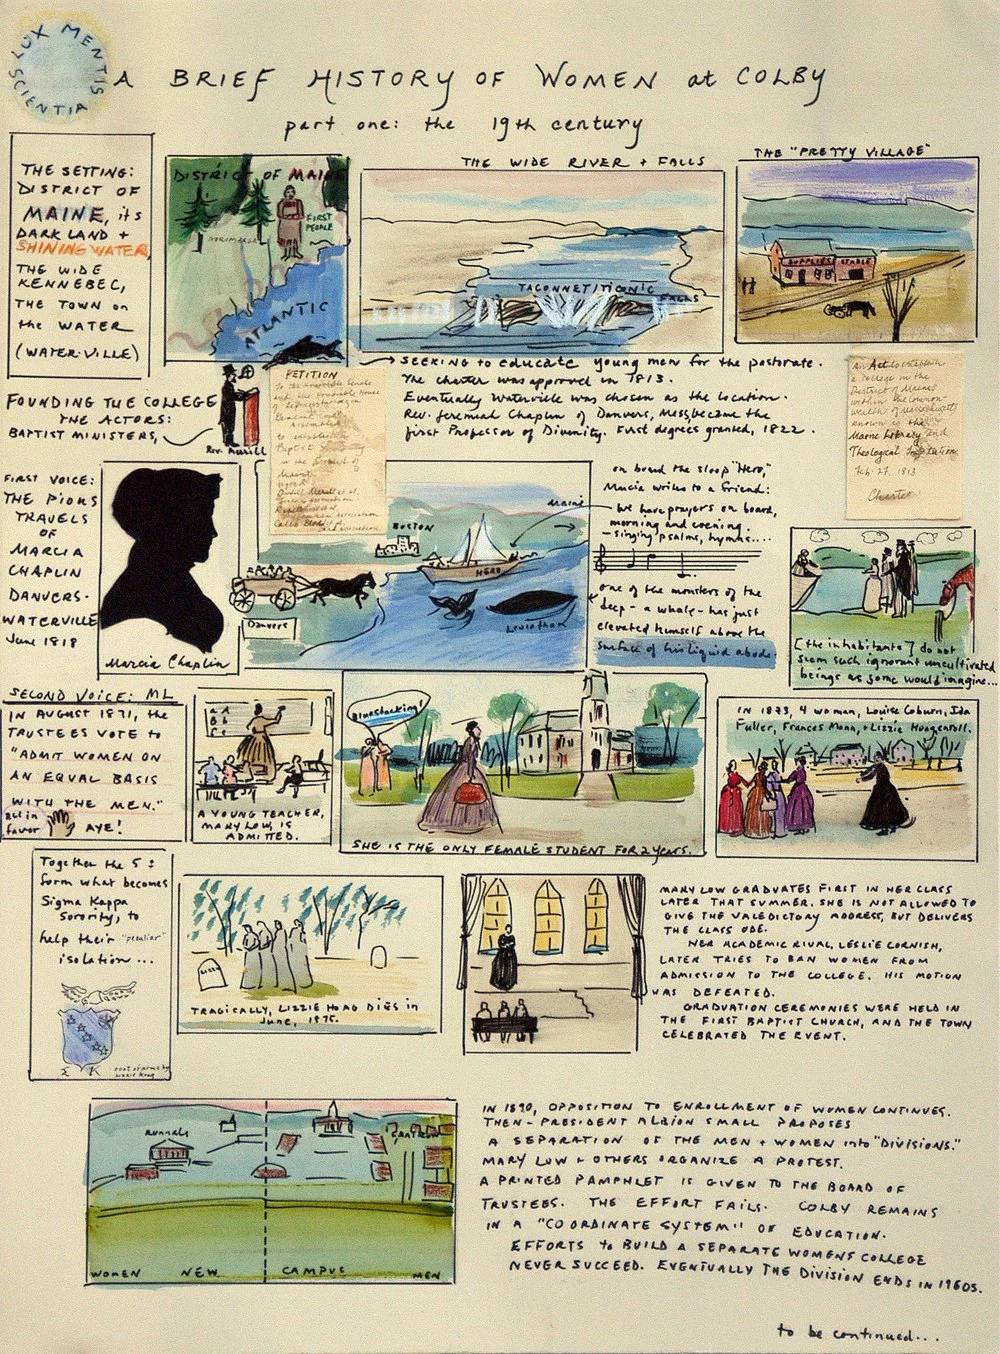 LUX MENTIS
SCIENTIA
A BRIEF HISTORY OF WOMEN at COLBY
part one: the 19th century
THE SETTING:
DISTRICT OF
MAINE, its
DARK LAND +
SHINING WATER,
THE WIDE
KENNEBEC,
THE TOWN on
the WATER
(WATER-VILLE)
DISTRICT OF MAINE
FIRST
PEOPLE
NORUMBEGA
ATLANTIC
THE WIDE RIVER + FALLS
TACONNET/TICONIC
FALLS
THE "PRETTY VILLAGE"
SUPPLIES
STABLE
FOUNDING THE COLLEGE
THE ACTORS:
BAPTIST MINISTERS,
Rev. Merrill
PETITION
to establish
Baptist
in the District of
Maine
→ SEEKING to educate young men for the pastorate.
The charter was approved in 1813.
Eventually Waterville was chosen as the location.
Rev. Jeremiah Chaplin of Danvers, Mass, became the
first Professor of Divinity. First degrees granted, 1822.
An Act to establish
a College in the
District of Maine
within the Common-
wealth of Massachusetts
known as the
Maine Literary and
Theological Institution.
Feb. 27, 1813
Charter
FIRST VOICE:
THE PIOUS
TRAVELS
OF
MARCIA
CHAPLIN
DANVERS-
WATERVILLE
June 1818
Marcia Chaplin
BOSTON
Maine
HERO
Danvers
Leviathan
on board the sloop "Hero,"
Marcia writes to a friend:
we have prayers on board,
morning and evening.
-singing psalms, hymns....
one of the monsters of the
deep - a whale - has just
elevated himself above the
surface of his liquid abode.
[the inhabitants] do not
seem such ignorant uncultivated
beings as some would imagine...
SECOND VOICE: ML
IN AUGUST 1871, the
TRUSTEES VOTE to
"ADMIT WOMEN ON
AN EQUAL BASIS
WITH THE MEN."
all in
favor AYE!
A YOUNG TEACHER,
MARY LOW, IS
ADMITTED.
Bluestocking!
SHE IS THE ONLY FEMALE STUDENT FOR 2 years.
IN 1873, 4 women, Louise Coburn, Ida
Fuller, Frances Mann, + Lizzie Hoag enroll.
Together the 5
form what becomes
Sigma Kappa
Sorority, to
help their "peculiar"
isolation...
Σ K
coat of arms by
Lizzie Hoag
TRAGICALLY, LIZZIE HOAG DIES in
June, 1875.
MARY LOW GRADUATES FIRST IN HER CLASS
LATER THAT SUMMER. SHE IS NOT ALLOWED TO
GIVE THE VALEDICTORY ADDRESS, BUT DELIVERS
THE CLASS ODE.
HER ACADEMIC RIVAL, LESLIE CORNISH,
LATER TRIES TO BAN WOMEN FROM
ADMISSION TO THE COLLEGE. HIS MOTION
WAS DEFEATED.
GRADUATION CEREMONIES WERE HELD IN
THE FIRST BAPTIST CHURCH, AND THE TOWN
CELEBRATED THE EVENT.
Runnals
WOMEN NEW CAMPUS MEN
IN 1890, OPPOSITION TO ENROLLMENT OF WOMEN CONTINUES.
THEN-PRESIDENT ALBION SMALL PROPOSES
A SEPARATION OF THE MEN + WOMEN into "DIVISIONS."
MARY LOW + OTHERS ORGANIZE A PROTEST.
A PRINTED PAMPHLET IS GIVEN TO THE BOARD OF
TRUSTEES. THE EFFORT FAILS. COLBY REMAINS
IN A "CO ORDINATE SYSTEM" OF EDUCATION.
EFFORTS to BUILD A SEPARATE WOMENS COLLEGE
NEVER SUCCEED. EVENTUALLY THE DIVISION ENDS IN 1960s.
to be continued...